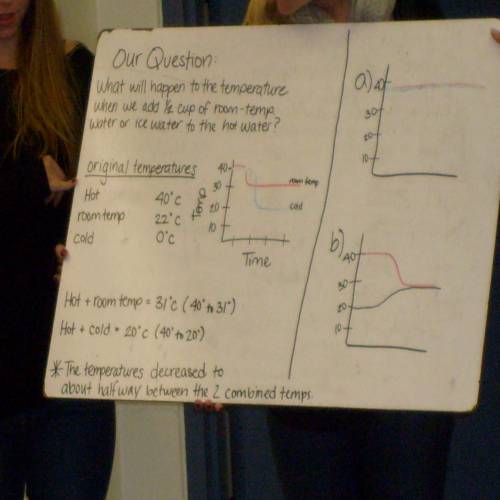 Our Question:
What will happen to the temperature
when we add ½ cup of room-temp
water or ice water to the hot water?
original temperatures
Hot 40°C
room temp 22°C
cold 0°C
40
30
20
10
room temp
cold
Time
Hot + room temp = 31°C (40° to 31°)
Hot + cold = 20°C (40° to 20°)
* The temperatures decreased to
about halfway between the 2 combined temps.
a)
40
30
20
10
b)
40
30
20
10